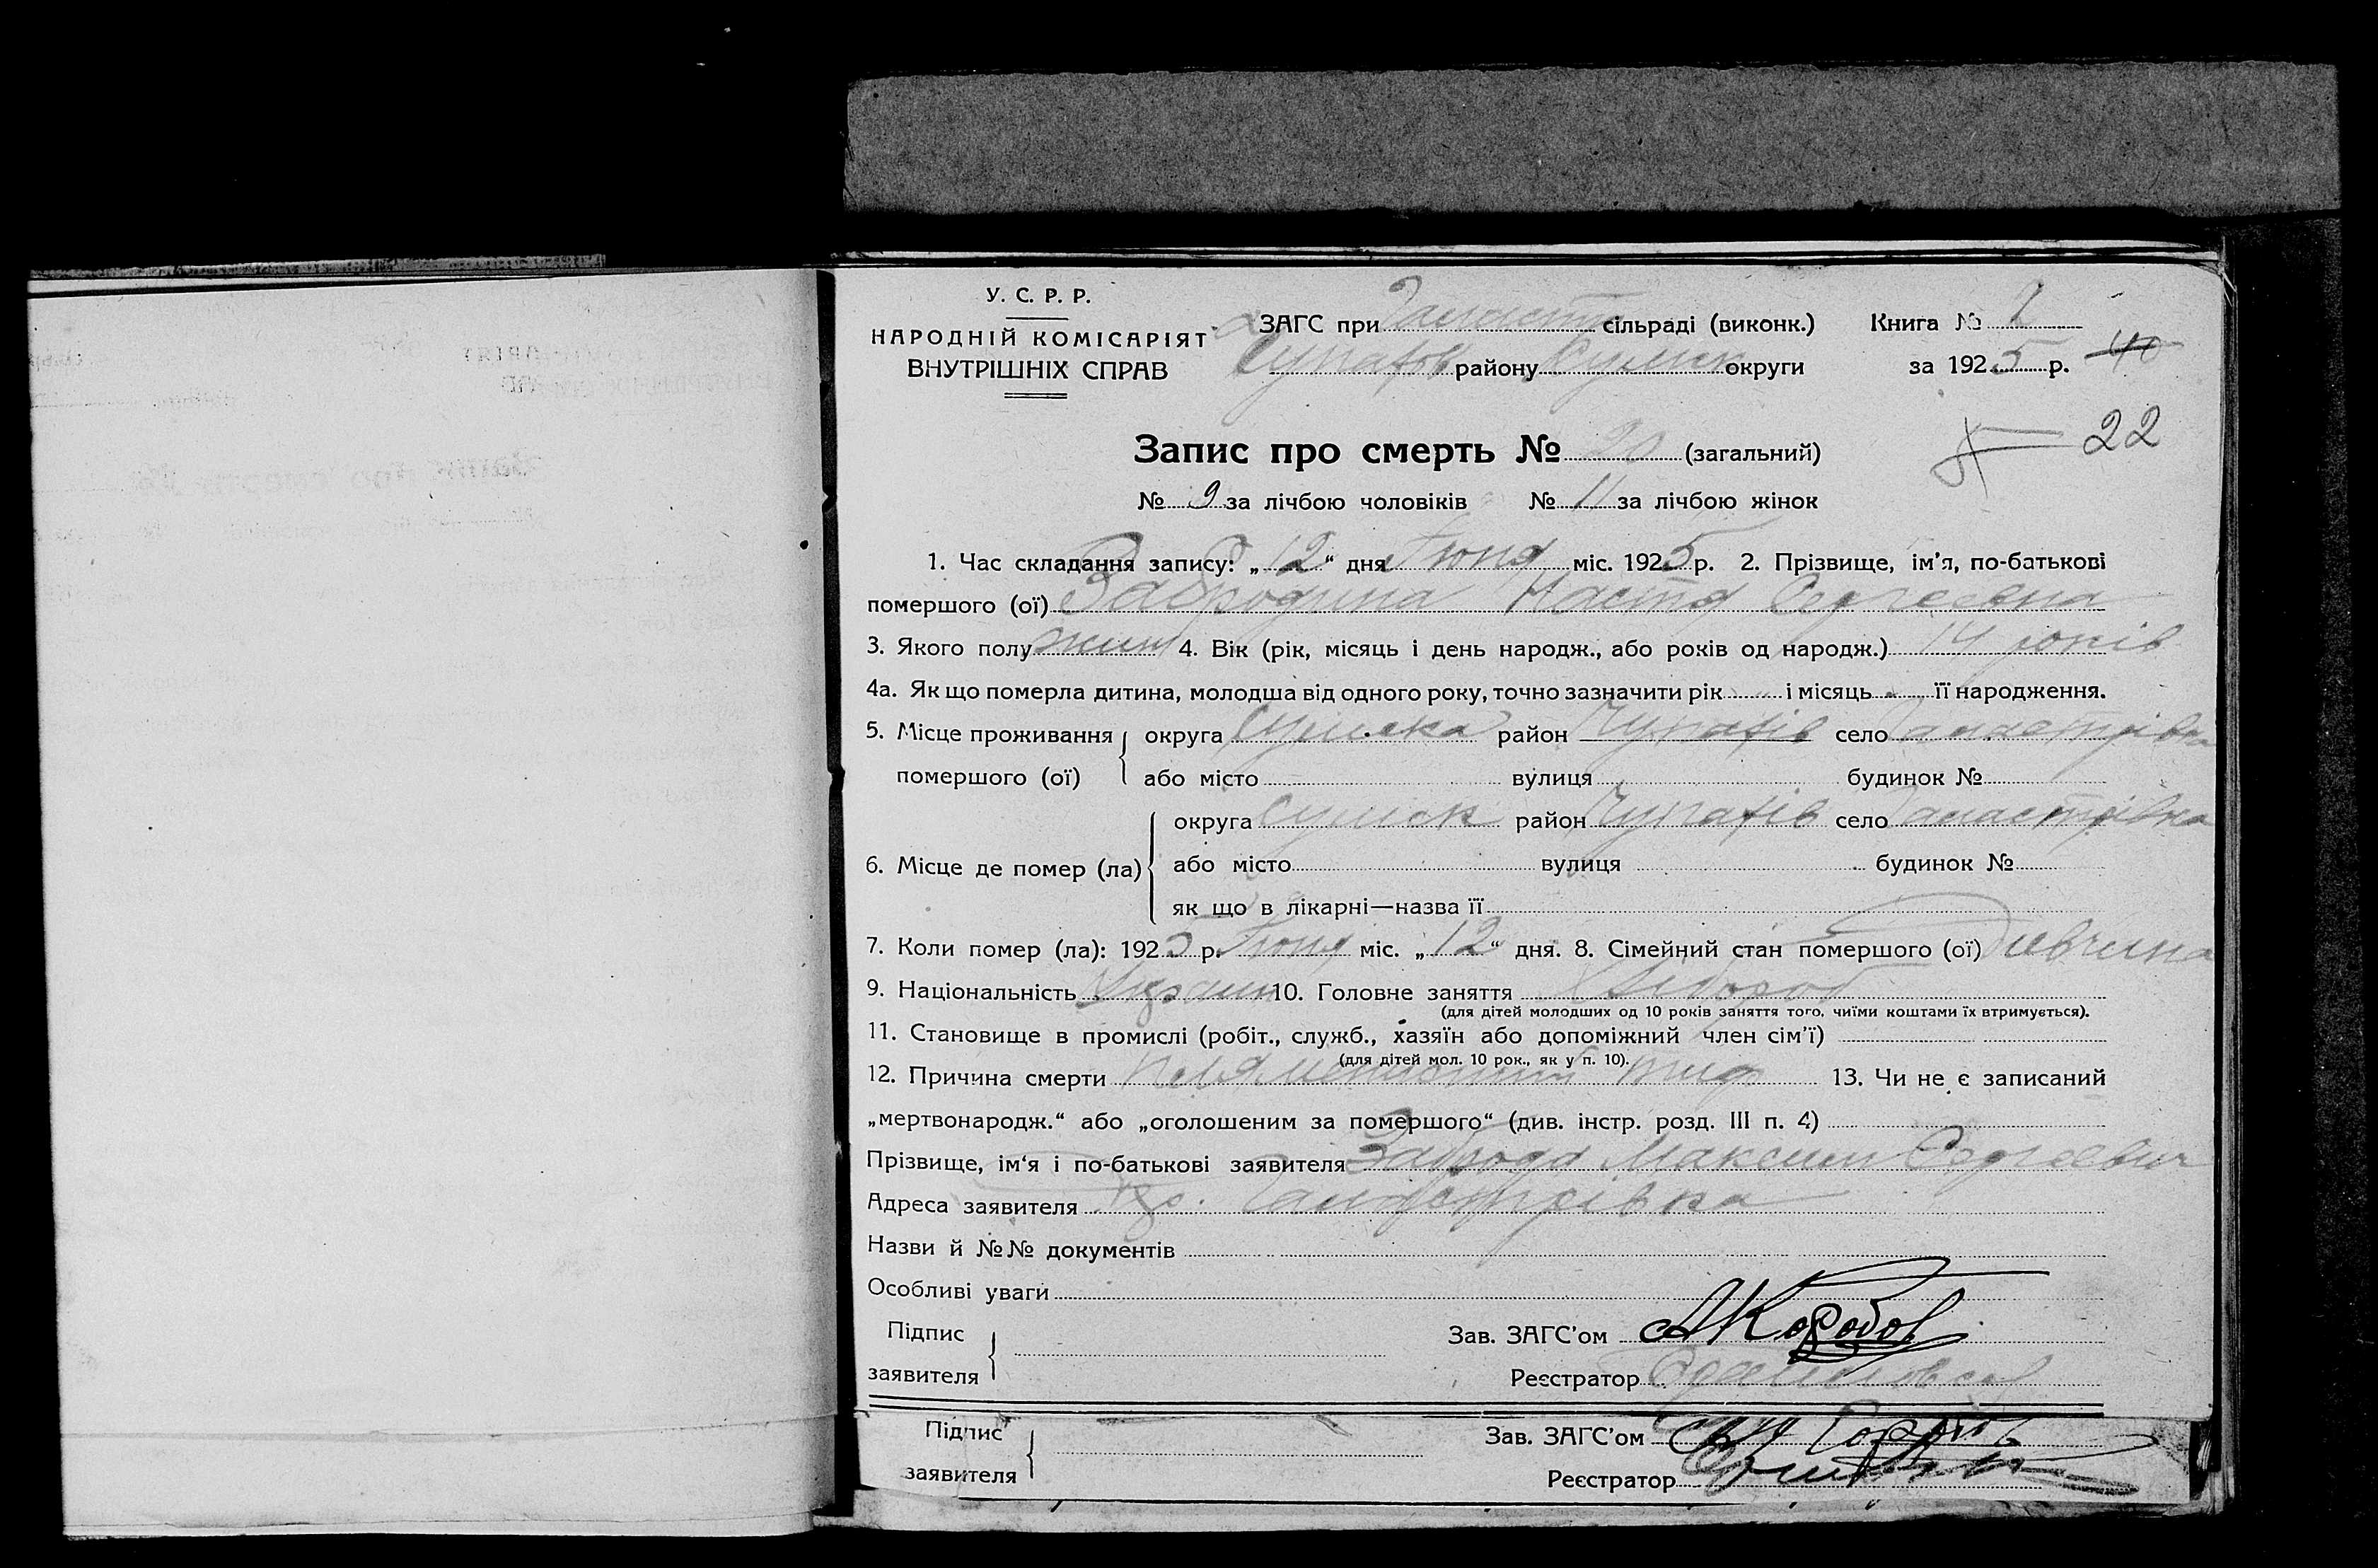 У. С. Р. Р.
НАРОДНІЙ КОМІСАРІЯТ
ВНУТРІШНІХ СПРАВ
ЗАГС при сільраді (виконк.) Книга №
району округи за 1925 р. 40
22
Запис про смерть № 20 (загальний)
№ 9 за лічбою чоловіків № 11 за лічбою жінок
1. Час складання запису: „12“ дня Июня міс. 1925 р. 2. Прізвище, ім’я, по-батькові
помершого (ої) Забродина Настя Сергеевна
3. Якого полу жин 4. Вік (рік, місяць і день народж., або років од народж.) 14 років
4а. Як що померла дитина, молодша від одного року, точно зазначити рік і місяць її народження.
5. Місце проживання помершого (ої) округа Сумска район Чупахів село
або місто вулиця будинок №
6. Місце де помер (ла) округа Сумск район Чупахів село
або місто вулиця будинок №
як що в лікарні—назва її
7. Коли помер (ла): 1925 р. Июня міс. „12“ дня. 8. Сімейний стан помершого (ої) Дивчина
9. Національність Украин 10. Головне заняття Хлібороб
(для дітей молодших од 10 років заняття того, чиїми коштами їх втримується).
11. Становище в промислі (робіт., служб., хазяїн або допоміжний член сім’ї)
(для дітей мол. 10 рок., як у п. 10).
12. Причина смерти тиф 13. Чи не є записаний
„мертвонародж.“ або „оголошеним за помершого“ (див. інстр. розд. III п. 4)
Прізвище, ім‘я і по-батькові заявителя Заброда Максим Сергеевич
Адреса заявителя
Назви й №№ документів
Особливі уваги
Підпис заявителя Зав. ЗАГС’ом АКоробов
Реєстратор
Підпис заявителя Зав. ЗАГС’ом
Реєстратор